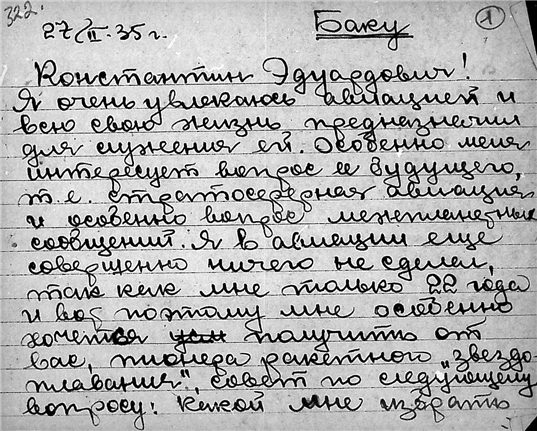 322.
27/II·35 г.
Баку
1
Константин Эдуардович!
Я очень увлекаюсь авиацией и
всю свою жизнь предназначил
для служения ей. Особенно меня
интересует вопрос ее будущего,
т.е. стратосферная авиация
и особенно вопрос межпланетных
сообщений. Я в авиации еще
совершенно ничего не сделал,
так как мне только 22 года
и вот поэтому мне особенно
хочется получить от
вас, пионера ракетного „звездо-
плавания", совет по следующему
вопросу: какой мне избрать